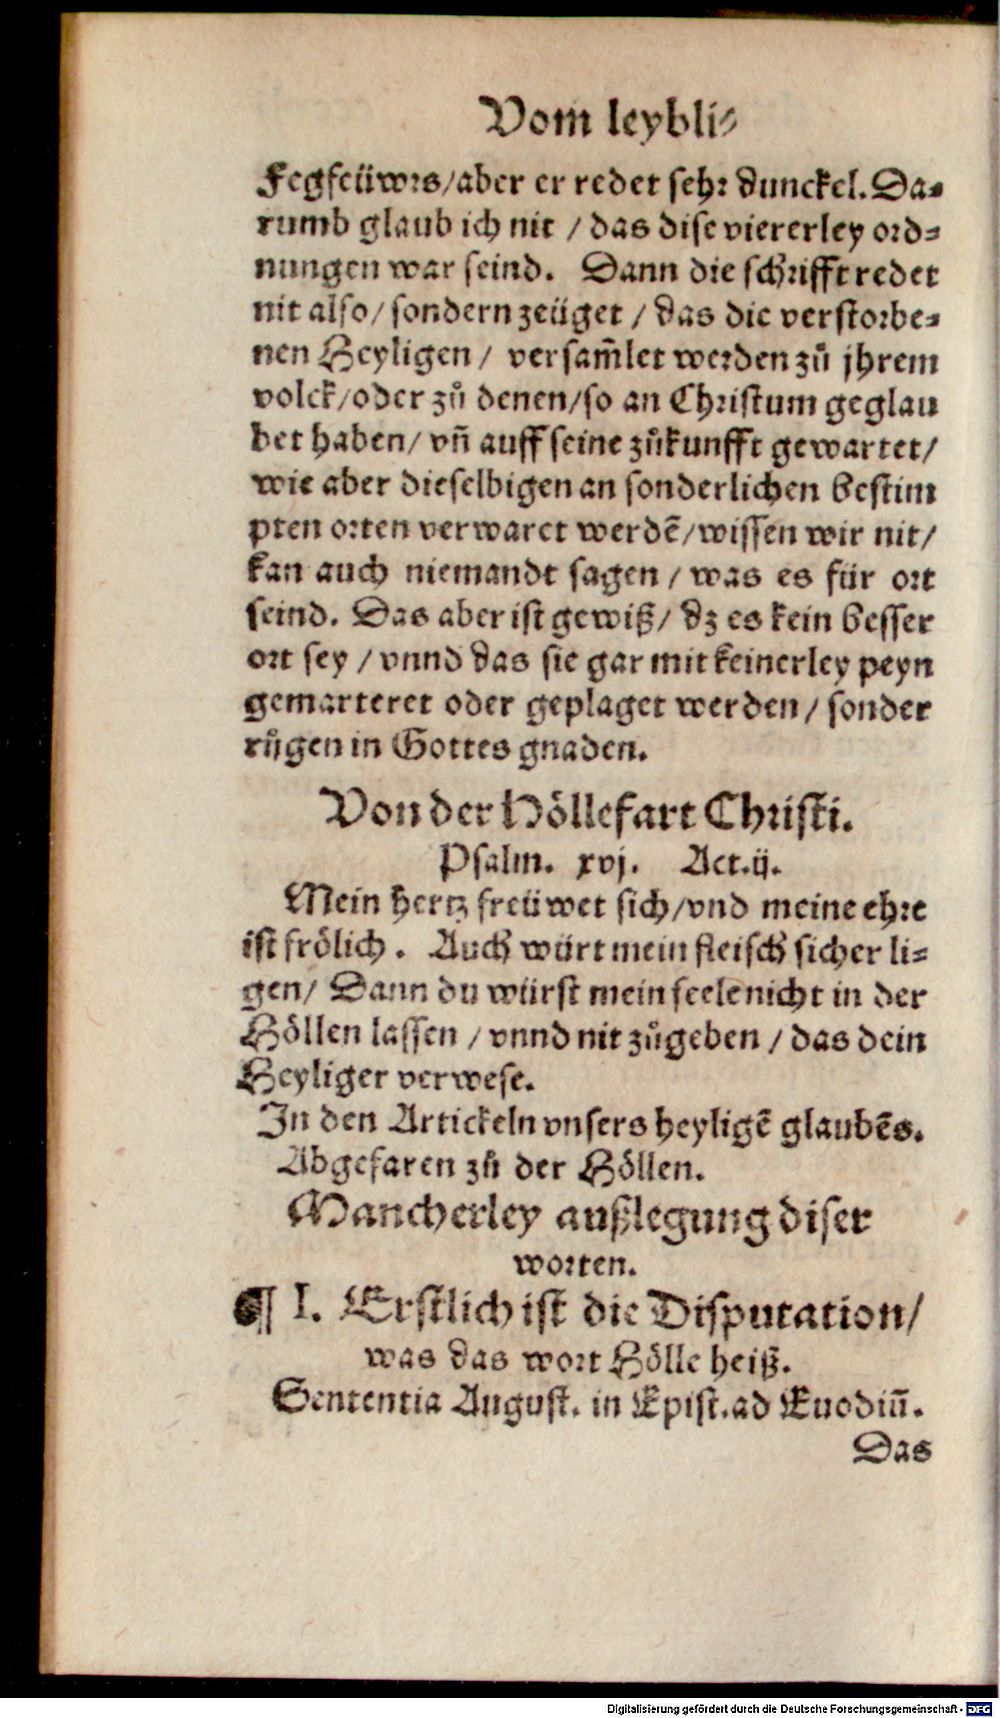 Vom leybli⸗
Fegfeüwrs/aber er redet sehr dunckel. Da⸗
rumb glaub ich nit / das dise viererley ord⸗
nungen war seind. Dann die schrifft redet
nit also/ sondern zeüget / das die verstorbe⸗
nen Heyligen / versam̃let werden zů jhrem
volck/oder zů denen/so an Christum geglau
bet haben/ vñ auff seine zůkunfft gewartet/
wie aber dieselbigen an sonderlichen bestim
pten orten verwaret werdẽ/wissen wir nit/
kan auch niemandt sagen / was es für ort
seind. Das aber ist gewiß/ dz es kein besser
ort sey / vnnd das sie gar mit keinerley peyn
gemarteret oder geplaget werden / sonder
růgen in Gottes gnaden.
Von der Höllefart Christi.
Psalm. xvj. Act.ij.
Mein hertz freüwet sich/vnd meine ehre
ist frölich. Auch würt mein fleisch sicher li⸗
gen/ Dann du würst mein seele nicht in der
Höllen lassen / vnnd nit zůgeben / das dein
Heyliger verwese.
In den Artickeln vnsers heyligẽ glaubẽs.
Abgefaren zů der Höllen.
Mancherley außlegung diser
worten.
¶ I. Erstlich ist die Disputation/
was das wort Hölle heiß.
Sententia August. in Epist. ad Euodiũ.
Das
Digitalisierung gefördert durch die Deutsche Forschungsgemeinschaft - DFG